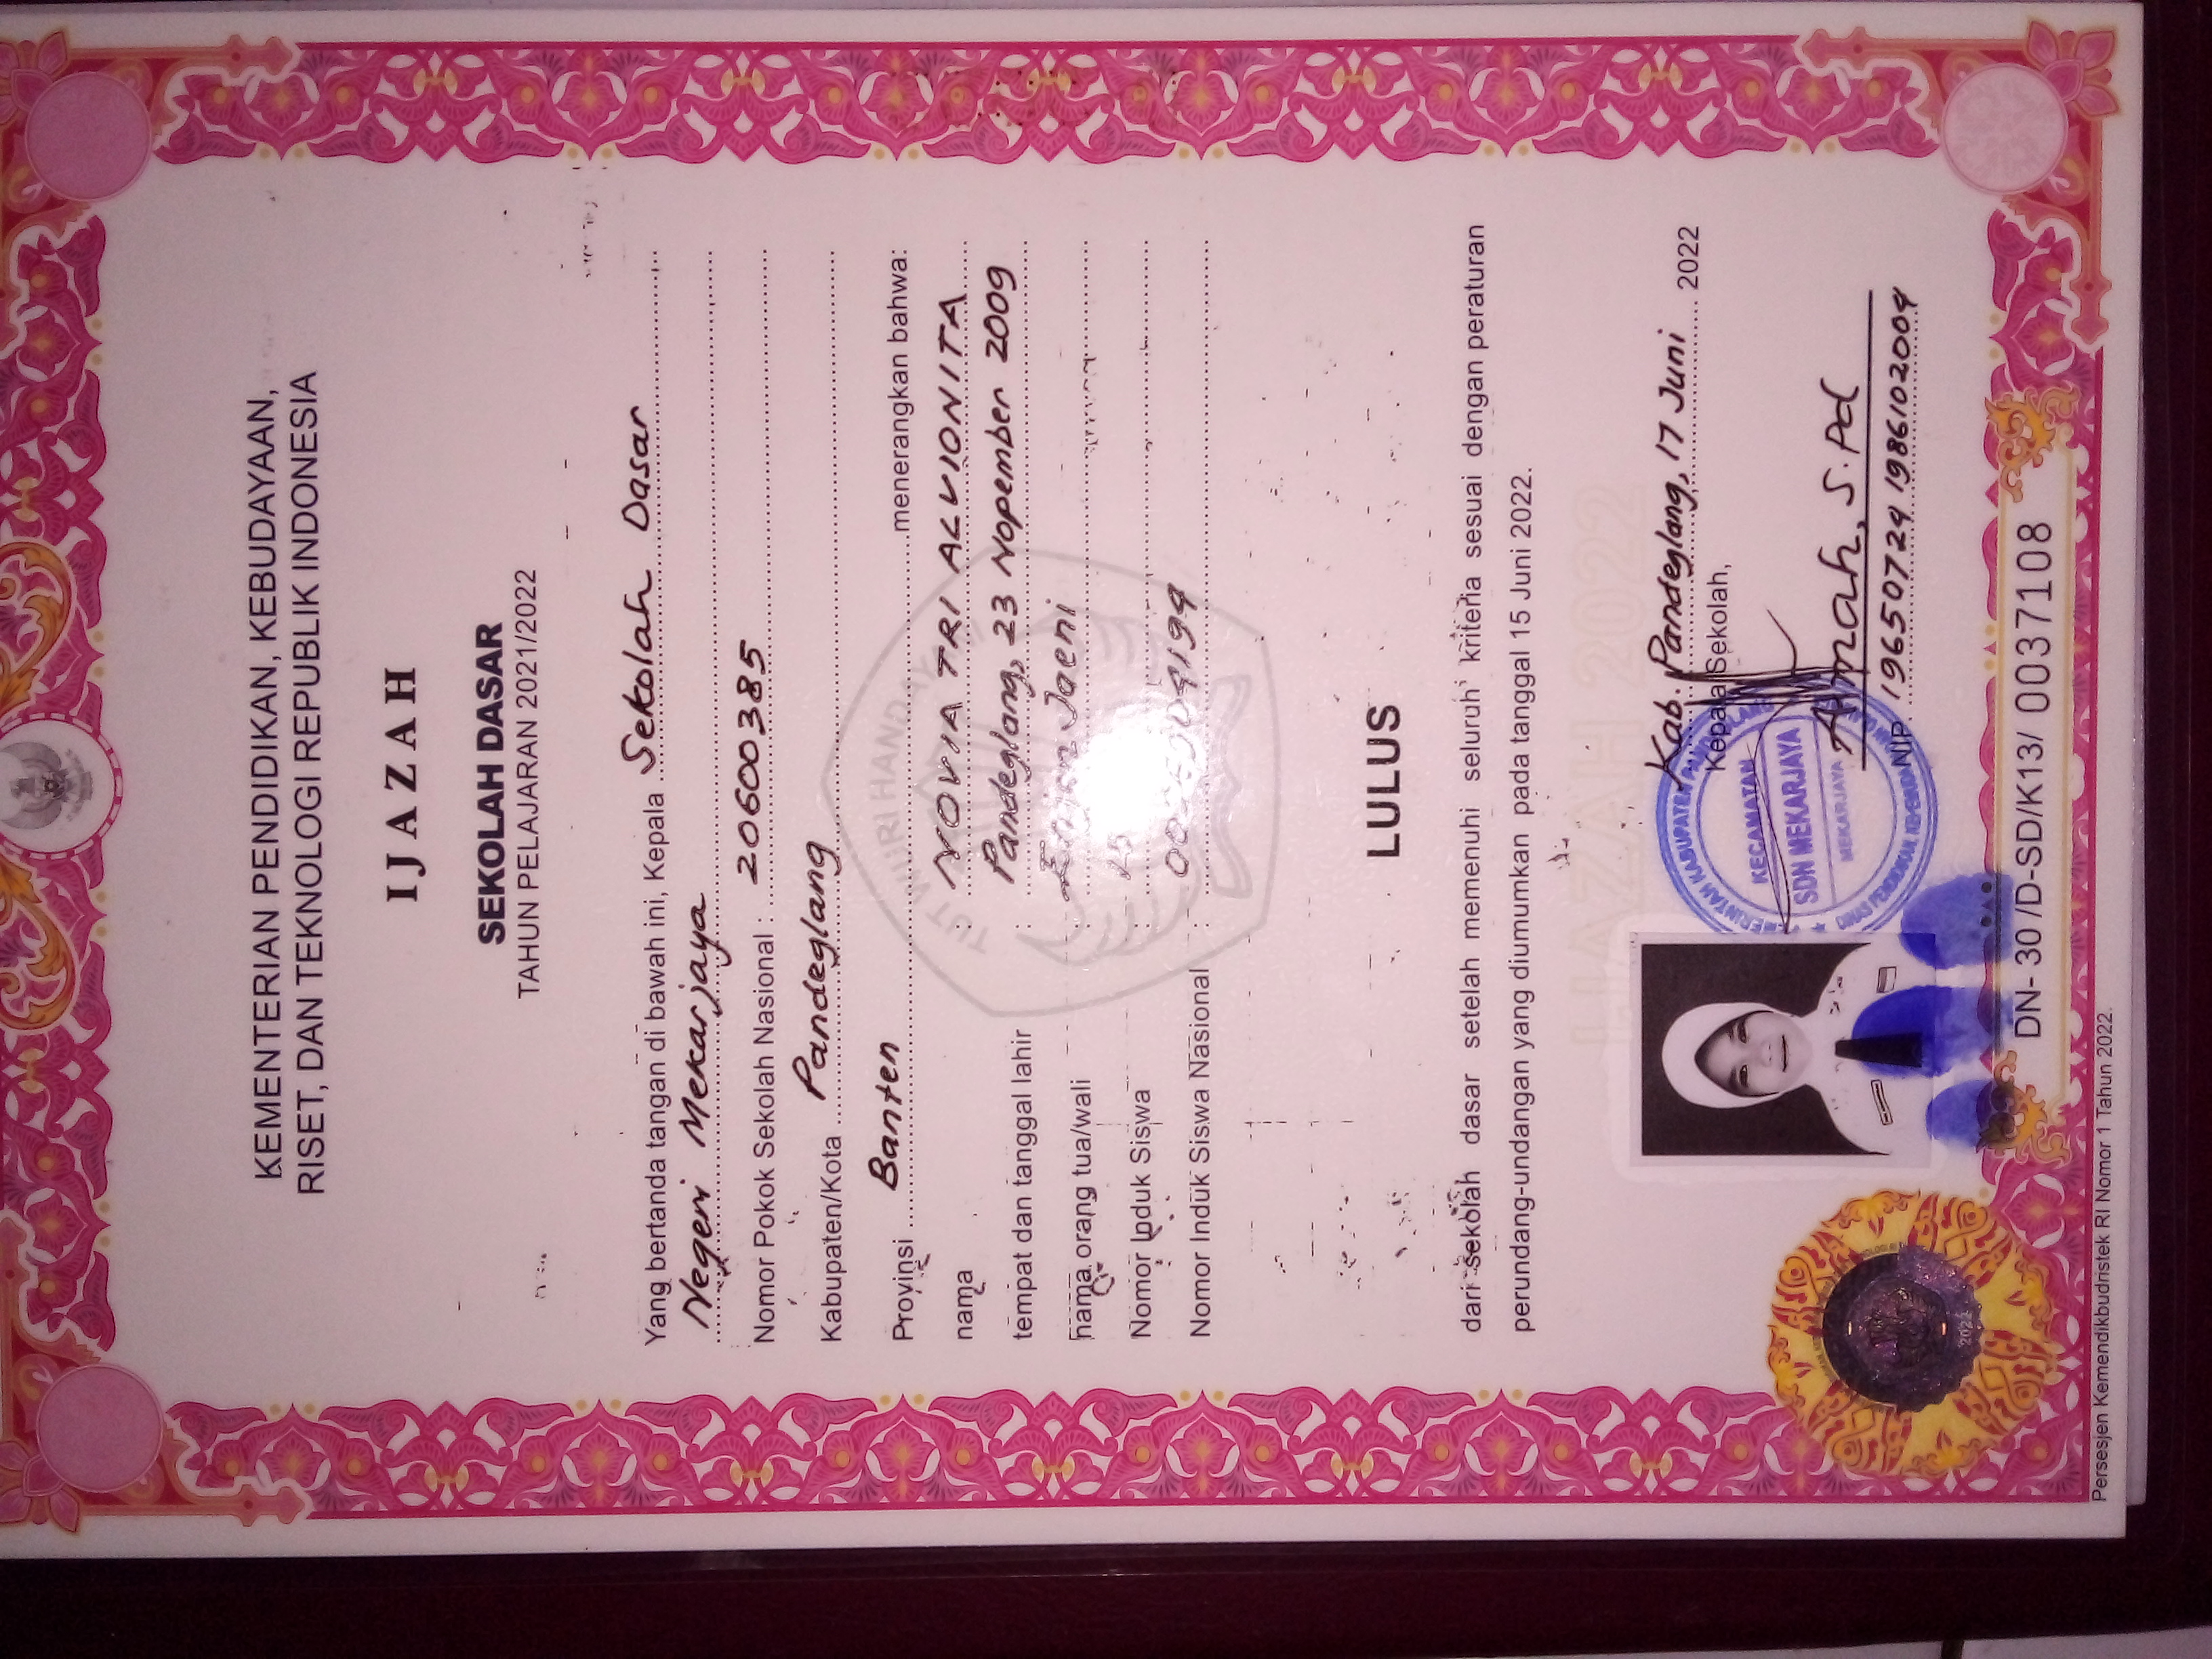 KEMENTERIAN PENDIDIKAN, KEBUDAYAAN,
RISET, DAN TEKNOLOGI REPUBLIK INDONESIA
IJAZAH
SEKOLAH DASAR
TAHUN PELAJARAN 2021/2022
Yang bertanda tangan di bawah ini, Kepala Sekolah Dasar
Negeri Mekarjaya
Nomor Pokok Sekolah Nasional : 20600385
Kabupaten/Kota Pandeglang
Provinsi Banten menerangkan bahwa:
nama : NOVIA TRI ALVIONITA
tempat dan tanggal lahir : Pandeglang, 23 Nopember 2009
nama orang tua/wali : Jaeni
Nomor Induk Siswa :
Nomor Induk Siswa Nasional :
TUT WURI HANDAYANI
LULUS
dari sekolah dasar setelah memenuhi seluruh kriteria sesuai dengan peraturan
perundang-undangan yang diumumkan pada tanggal 15 Juni 2022.
IJAZAH 2022
Kab. Pandeglang, 17 Juni 2022
Kepala Sekolah,
PEMERINTAH KABUPATEN PANDEGLANG
KECAMATAN
SDN MEKARJAYA
MEKARJAYA
S.Pd
NIP. 19650724 198610 2004
2022
DN- 30 /D-SD/K13/ 0037108
Persesjen Kemendikbudristek RI Nomor 1 Tahun 2022.